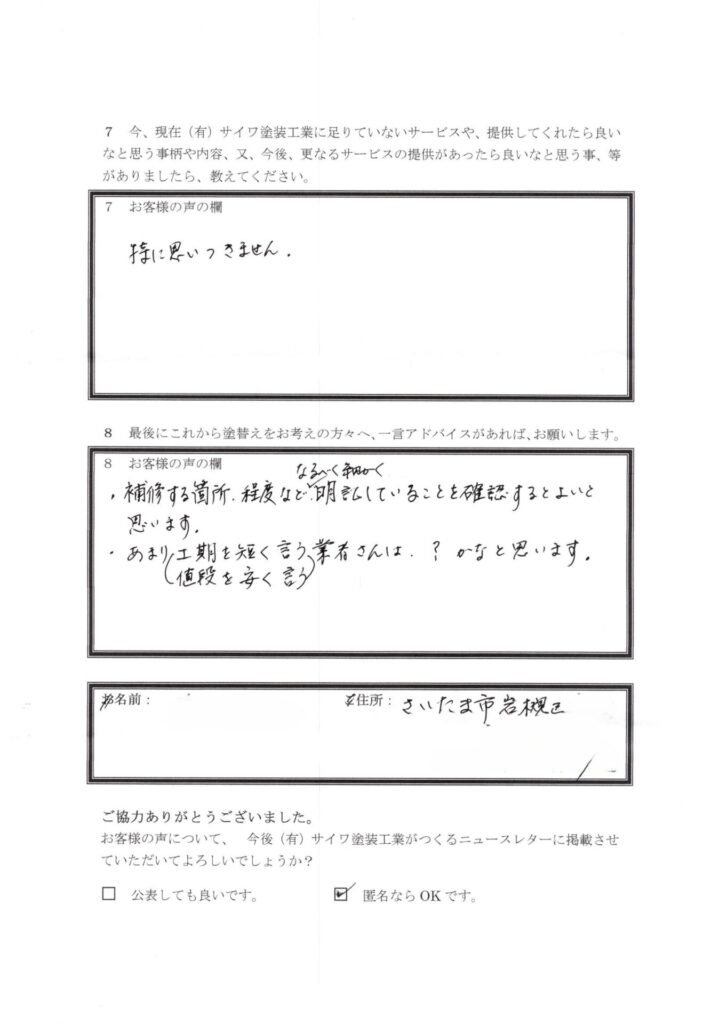 7 今、現在（有）サイワ塗装工業に足りていないサービスや、提供してくれたら良い
なと思う事柄や内容、又、今後、更なるサービスの提供があったら良いなと思う事、等
がありましたら、教えてください。
7 お客様の声の欄
特に思いつきません.
8 最後にこれから塗替えをお考えの方々へ、一言アドバイスがあれば、お願いします。
8 お客様の声の欄
なるべく細かく
・補修する箇所.程度など.明記していることを確認するとよいと
思います.
・あまり(工期を短く言う)業者さんは.？かなと思います.
(値段を安く言う)
お名前：
ご住所： さいたま市岩槻区
ご協力ありがとうございました。
お客様の声について、 今後（有）サイワ塗装工業がつくるニュースレターに掲載させ
ていただいてよろしいでしょうか？
□ 公表しても良いです。 ☑ 匿名なら OK です。